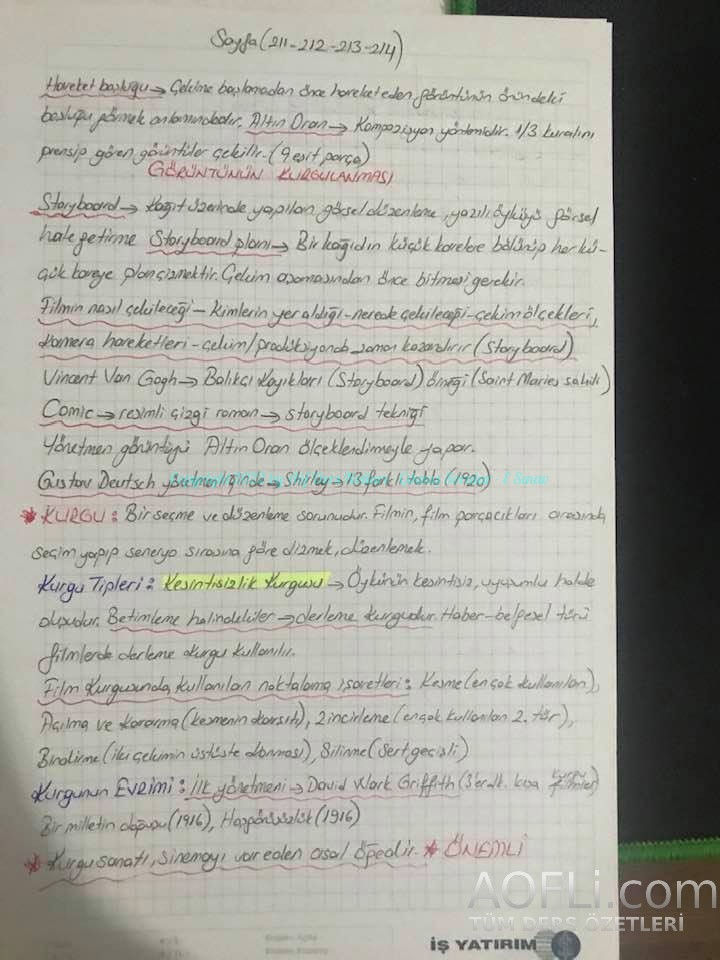 Sayfa (211-212-213-214)
Hareket boşluğu → Çekime başlamadan önce hareket eden görüntünün önündeki
boşluğu görmek anlamındadır. Altın Oran → Kompozisyon yöntemidir. 1/3 kuralını
prensip gören görüntüler çekilir. (9 eşit parça)
GÖRÜNTÜNÜN KURGULANMASI
Storyboard → Kağıt üzerinde yapılan görsel düzenleme, yazılı öyküyü görsel
hale getirme Storyboard planı → Bir kağıdın küçük karelere bölünüp her kü-
çük kareye plan çizmektir. Çekim aşamasından önce bitmesi gerekir.
Filmin nasıl çekileceği - kimlerin yer aldığı - nerede çekileceği - çekim ölçekleri,
kamera hareketleri - çekim/prodüksiyonda zaman kazandırır (Storyboard)
Vincent Van Gogh → Balıkçı Kayıkları (Storyboard) örneği (Saint Maries sahili)
Comic → resimli çizgi roman → storyboard tekniği
Yönetmen görüntüyü Altın Oran ölçeklendirmeyle yapar.
Gustav Deutsch yönetmenliğinde → Shirley → 13 farklı tablo (1920)
* KURGU: Bir seçme ve düzenleme sorunudur. Filmin, film parçacıkları arasında
seçim yapıp senaryo sırasına göre dizmek, düzenlemek.
Kurgu Tipleri: Kesintisizlik Kurgusu → Öykünün kesintisiz, uyuşumlu halde
oluşudur. Betimleme halindekiler → derleme kurgudur. Haber-belgesel türü
filmlerde derleme kurgu kullanılır.
Film Kurgusunda kullanılan noktalama işaretleri: Kesme (en çok kullanılan),
Açılma ve kararma (kesmenin karşıtı), Zincirleme (en çok kullanılan 2. tür),
Bindirme (iki çekimin üst üste konması), Silinme (Sert geçişli)
Kurgunun Evrimi: İlk yönetmeni → David Wark Griffith kısa kurgu filmler)
Bir milletin doğuşu (1916), Hoşgörüsüzlük (1916)
* Kurgu sanatı, Sinemayı var eden asal öğedir. * ÖNEMLİ
AOFLi.com
TÜM DERS ÖZETLERİ
İŞ YATIRIM